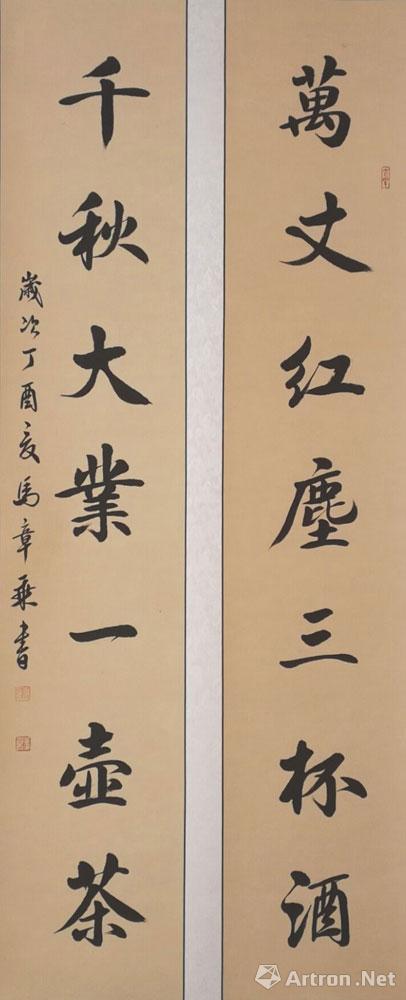 萬丈红塵三杯酒
千秋大業一壺茶
歲次丁酉夏馬章乘書
Artron.Net